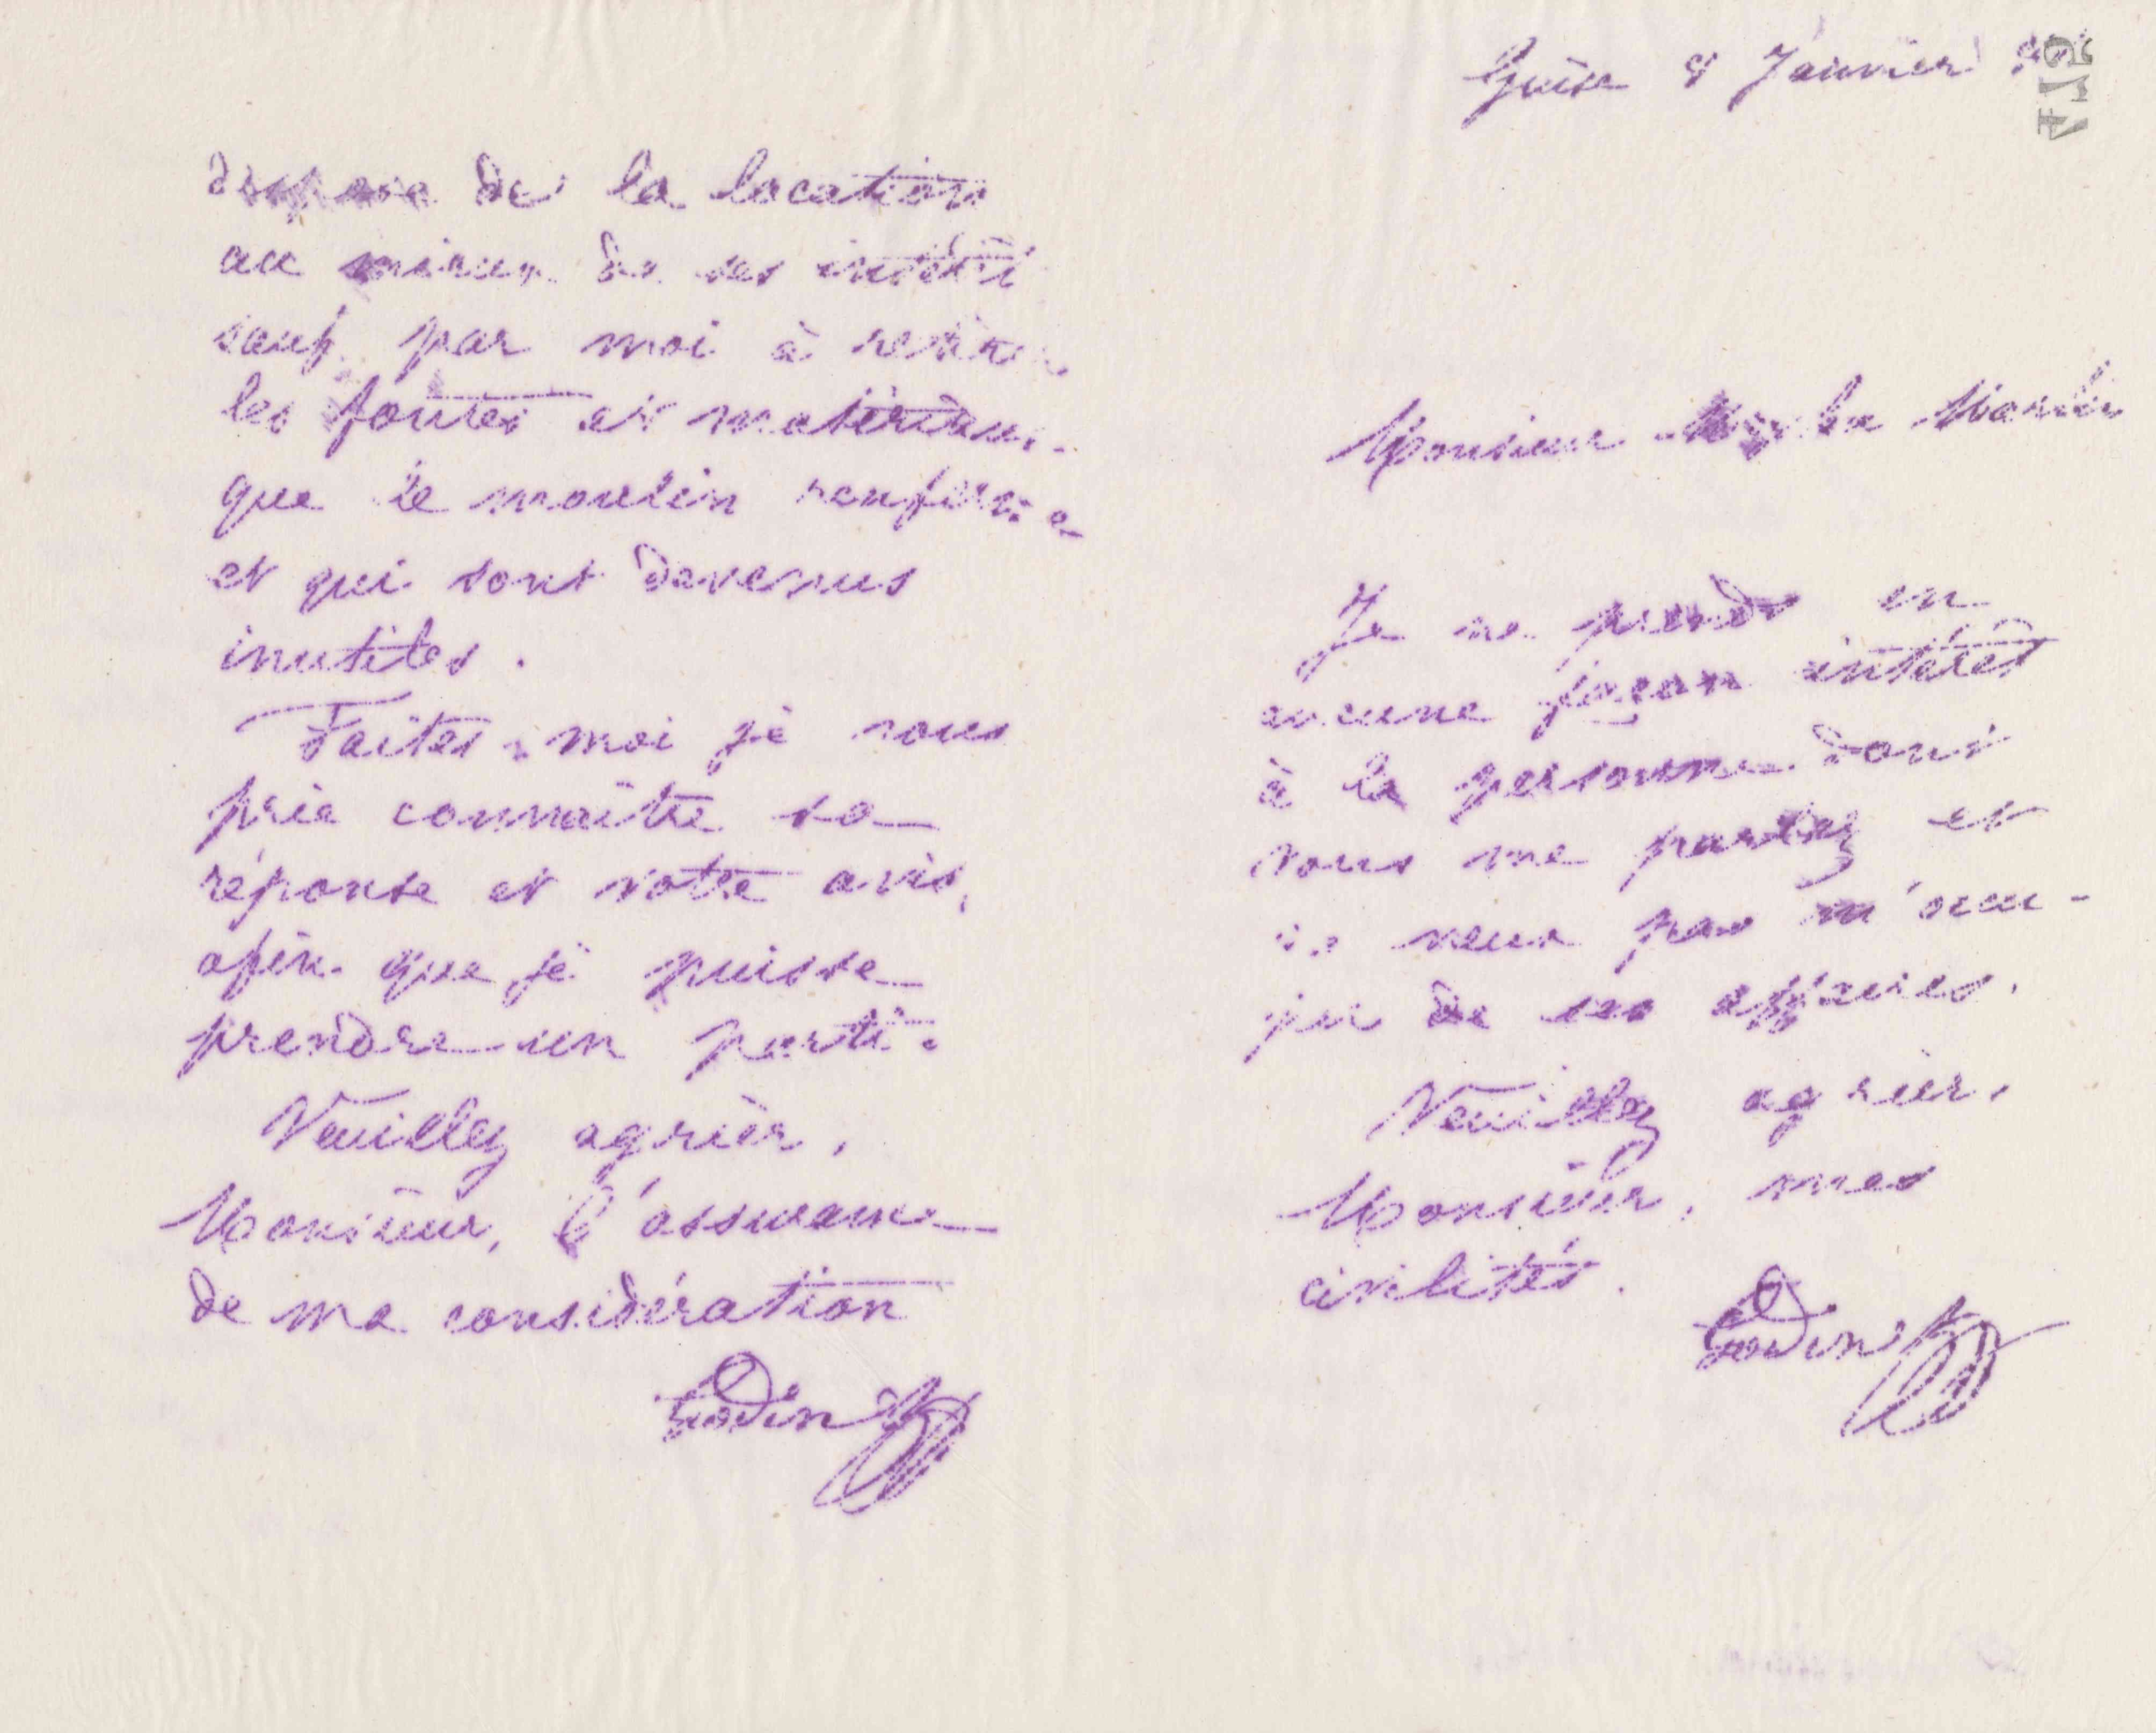 dispose de la location
au mieux de ses intérêt
sauf par moi à retirer
les fontes et matériaux
que le moulin renferme
et qui sont devenus
inutiles.
Faites-moi je vous
prie connaître sa
réponse et votre avis,
afin que je puisse
prendre un parti.
Veuillez agréer,
Monsieur, l'assurance
de ma considération
Godin
Guise 8 Janvier
Monsieur
Je ne prends en
aucune façon intérêt
à la personne dont
vous me parlez et
ne veux pas m'occu-
per de ses affaires.
Veuillez agréer,
Monsieur, mes
civilités.
Godin